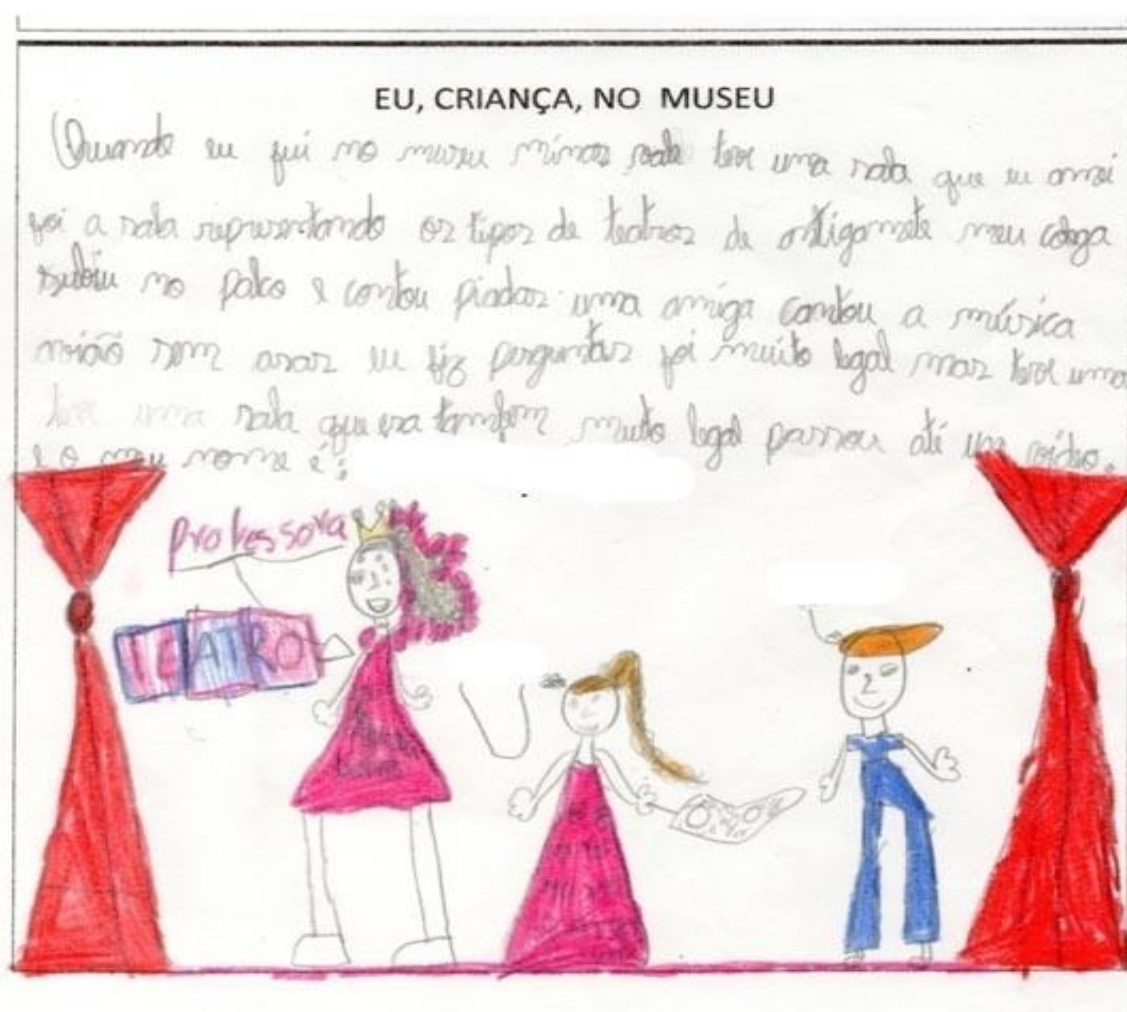 EU, CRIANÇA, NO MUSEU
Quando eu fui no museu minas vale teve uma sala que eu amei
foi a sala representando os tipos de teatros de antigamete meu colega
subiu no palco e contou piadas uma amiga cantou a música
avião sem asas eu fiz perguntas foi muito legal mas teve uma
teve uma sala que era tambem muito legal passou até um vídeo.
e o meu nome é:
professora
TEATRO